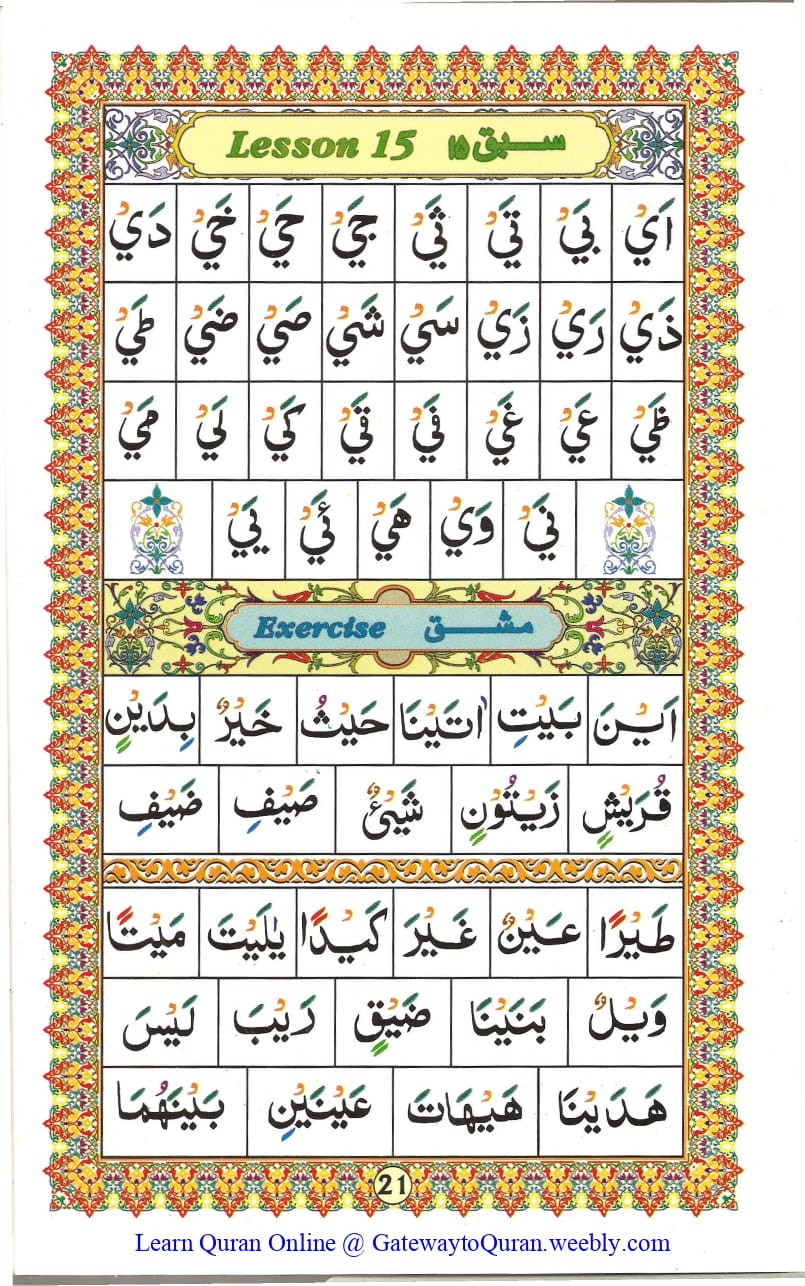 Lesson 15 سبق ۱۵
اَيْ بَيْ تَيْ ثَيْ جَيْ حَيْ خَيْ دَيْ
ذَيْ رَيْ زَيْ سَيْ شَيْ صَيْ ضَيْ طَيْ
ظَيْ عَيْ غَيْ فَيْ قَيْ كَيْ لَيْ مَيْ
نَيْ وَيْ هَيْ ئَيْ يَيْ
Exercise مشق
اَيْنَ بَيْتِ اٰتَيْنَا حَيْثُ خَيْرٌ بِدَيْنٍ
قُرَيْشٍ زَيْتُوْنٍ شَيْئٌ صَيْفِ ضَيْفِ
طَيْرًا عَيْنٌ غَيْرَ كَيْدًا يٰلَيْتَ مَيْتًا
وَيْلٌ بَنَيْنَا ضَيْقٍ رَيْبَ لَيْسَ
هَدَيْنَا هَيْهَاتَ عَيْنَيْنِ بَيْنَهُمَا
21
Learn Quran Online @ GatewaytoQuran.weebly.com